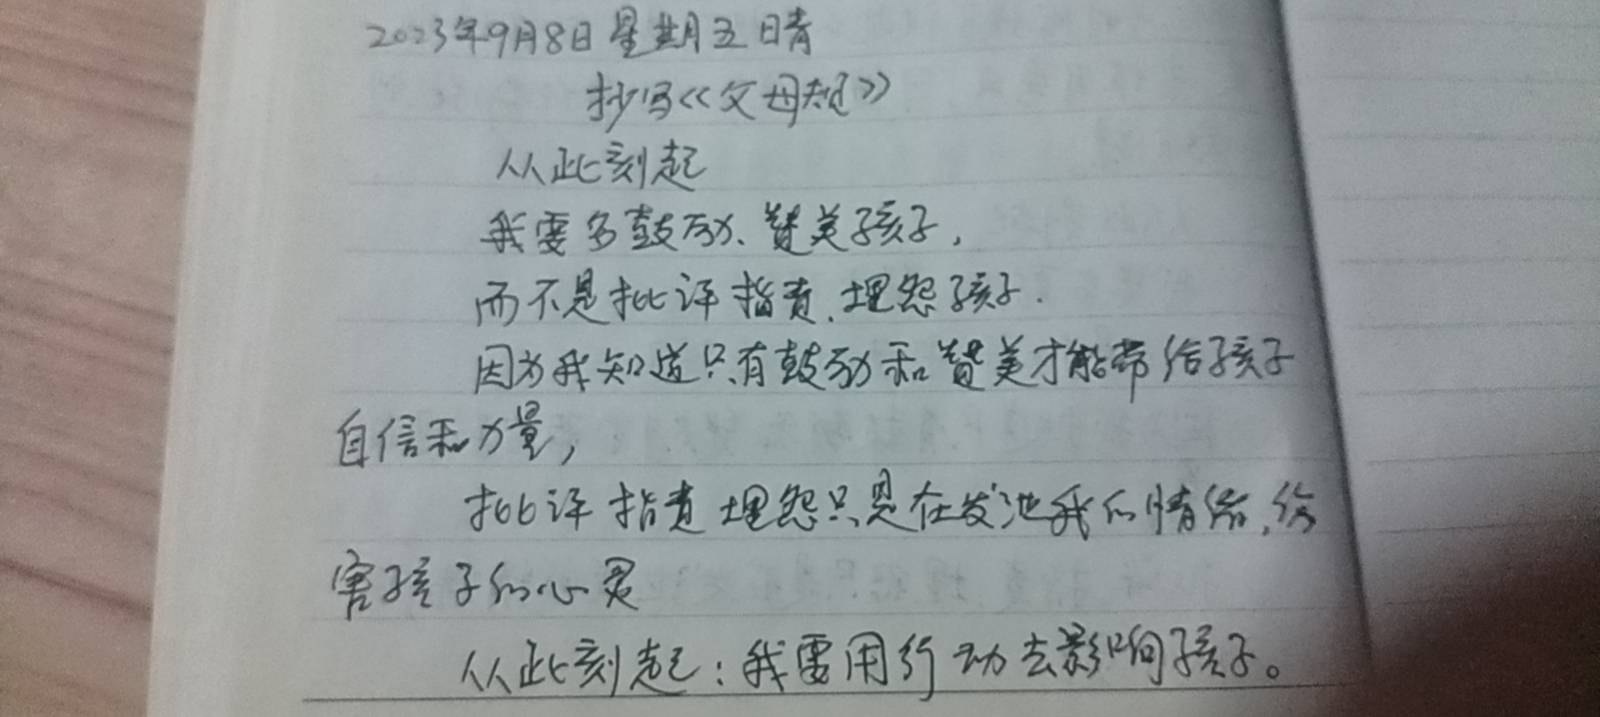 2023年9月8日星期五 晴
抄写《父母规》
从此刻起
我要多鼓励、赞美孩子,
而不是批评指责、埋怨孩子.
因为我知道只有鼓励和赞美才能带给孩子
自信和力量,
批评指责埋怨只是在发泄我的情绪,伤
害孩子的心灵
从此刻起:我要用行动去影响孩子。